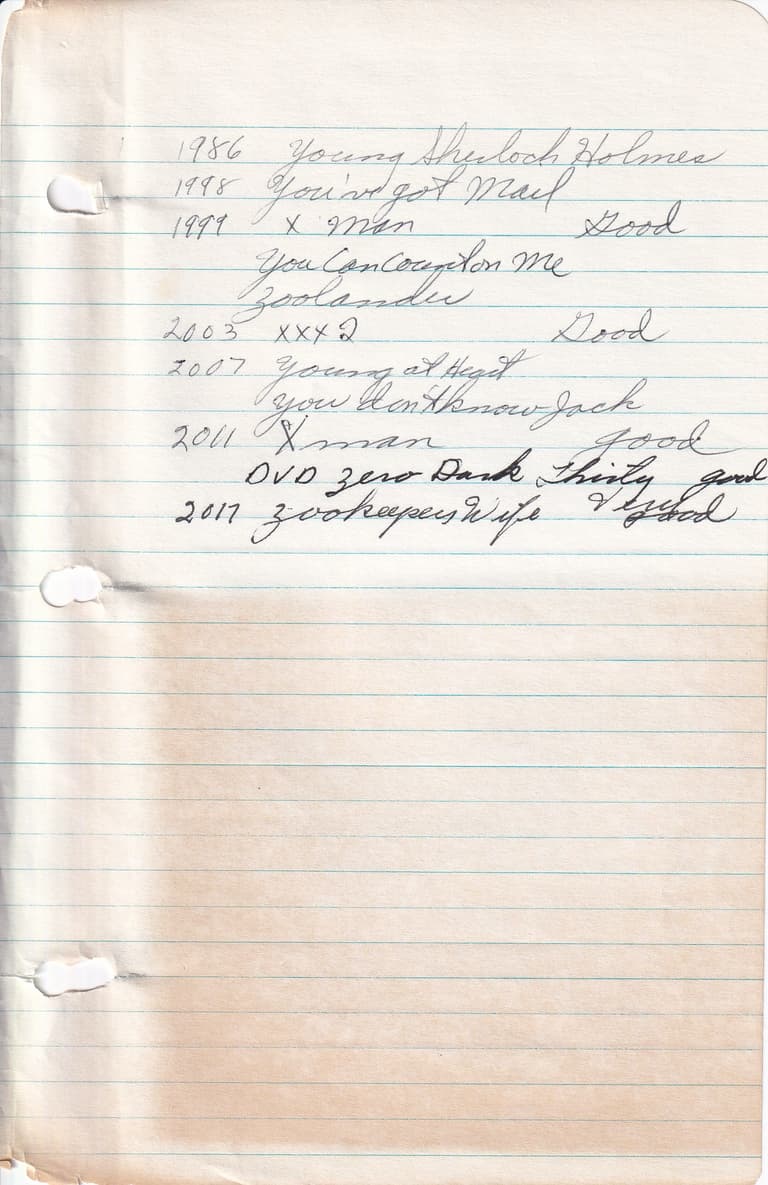 1986 Young Sherloch Holmes
1998 You've got Mail
1999 X Man Good
You Can Count on Me
Zoolander
2003 XXX2 Good
2007 Young at Heart
You don't know Jack
2011 X man good
DVD Zero Dark Thirty good
2017 Zookeepers Wife Very good